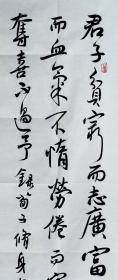 君子貧窮而志廣富
而血氣不惰勞倦而
奪喜不過予 錄荀子脩身